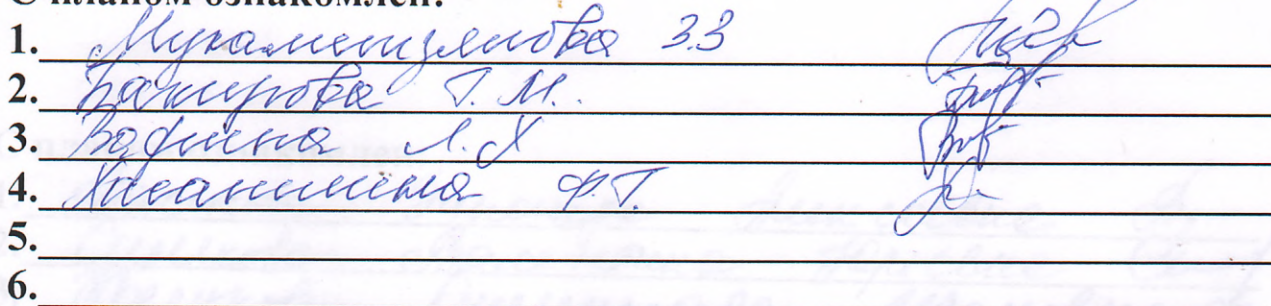 С планом ознакомлен:
1. Мухаметзянова З.З
2. Бакирова Г.М.
3. Вафина Л.Х
4. Хасаншина Ф.Г.
5.
6.